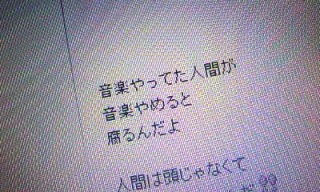 音楽やってた人間が
音楽やめると
腐るんだよ
人間は頭じゃなくて